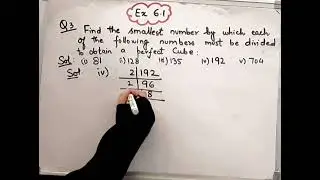 Ex 6.1
Q3 Find the smallest number by which each
of the following numbers must be divided
to obtain a perfect Cube:
Sol (i) 81 ii) 128 iii) 135 iv) 192 v) 704
Sol iv) 2 | 192
2 | 96
8